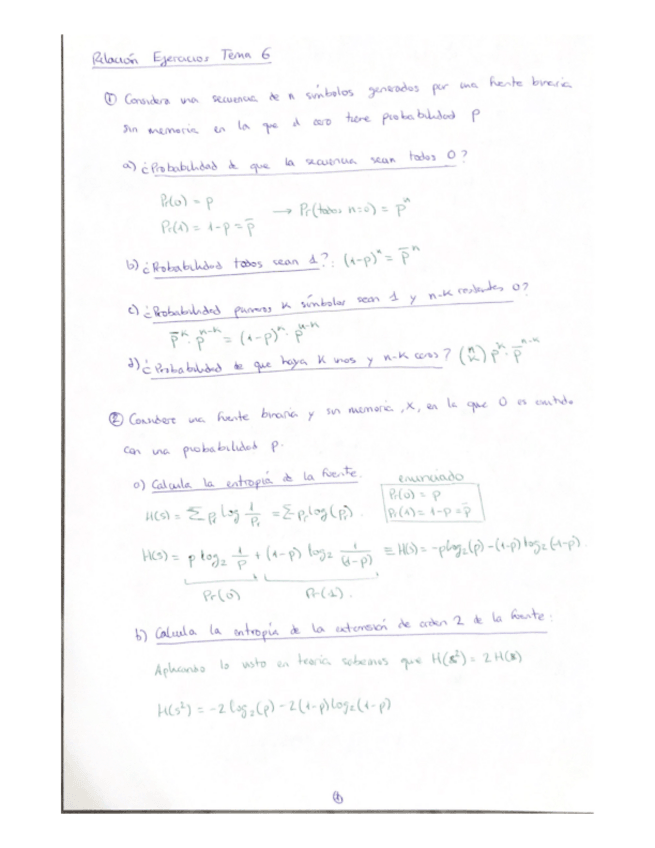 Relación Ejercicios Tema 6
① Considera una secuencia de n símbolos generados por una fuente binaria
sin memoria en la que el cero tiene probabilidad p
a) ¿Probabilidad de que la secuencia sean todos 0?
Pr(0) = p
Pr(1) = 1-p = p̅ → Pr(todos n=0) = pⁿ
b) ¿Probabilidad todos sean 1?: (1-p)ⁿ = p̅ⁿ
c) ¿Probabilidad primeros k símbolos sean 1 y n-k restantes 0?
p̅ᵏ · pⁿ⁻ᵏ = (1-p)ᵏ · pⁿ⁻ᵏ
d) ¿Probabilidad de que haya k unos y n-k ceros? (n k) pᵏ · p̅ⁿ⁻ᵏ
② Considere una fuente binaria y sin memoria, X, en la que 0 es emitido
con una probabilidad p.
a) Calcula la entropía de la fuente. enunciado
H(s) = Σ pᵢ log 1/pᵢ = Σ pᵢ log(pᵢ). Pr(0) = p
Pr(1) = 1-p = p̅
H(s) = p log₂ 1/p + (1-p) log₂ 1/(1-p) ≡ H(s) = -p log₂(p) - (1-p) log₂(1-p).
Pr(0) Pr(1).
b) Calcula la entropía de la extensión de orden 2 de la fuente:
Aplicando lo visto en teoría sabemos que H(s²) = 2 H(s)
H(s²) = -2 log₂(p) - 2(1-p) log₂(1-p)
①